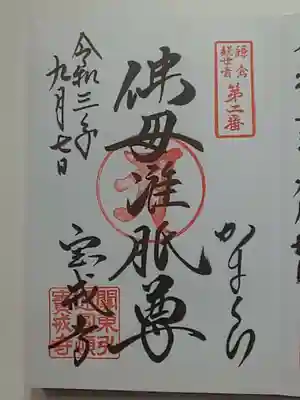 鎌倉
観世音
第二番
かまくら
佛母准胝尊
宝戒寺
令和三年
九月七日
寶戒寺